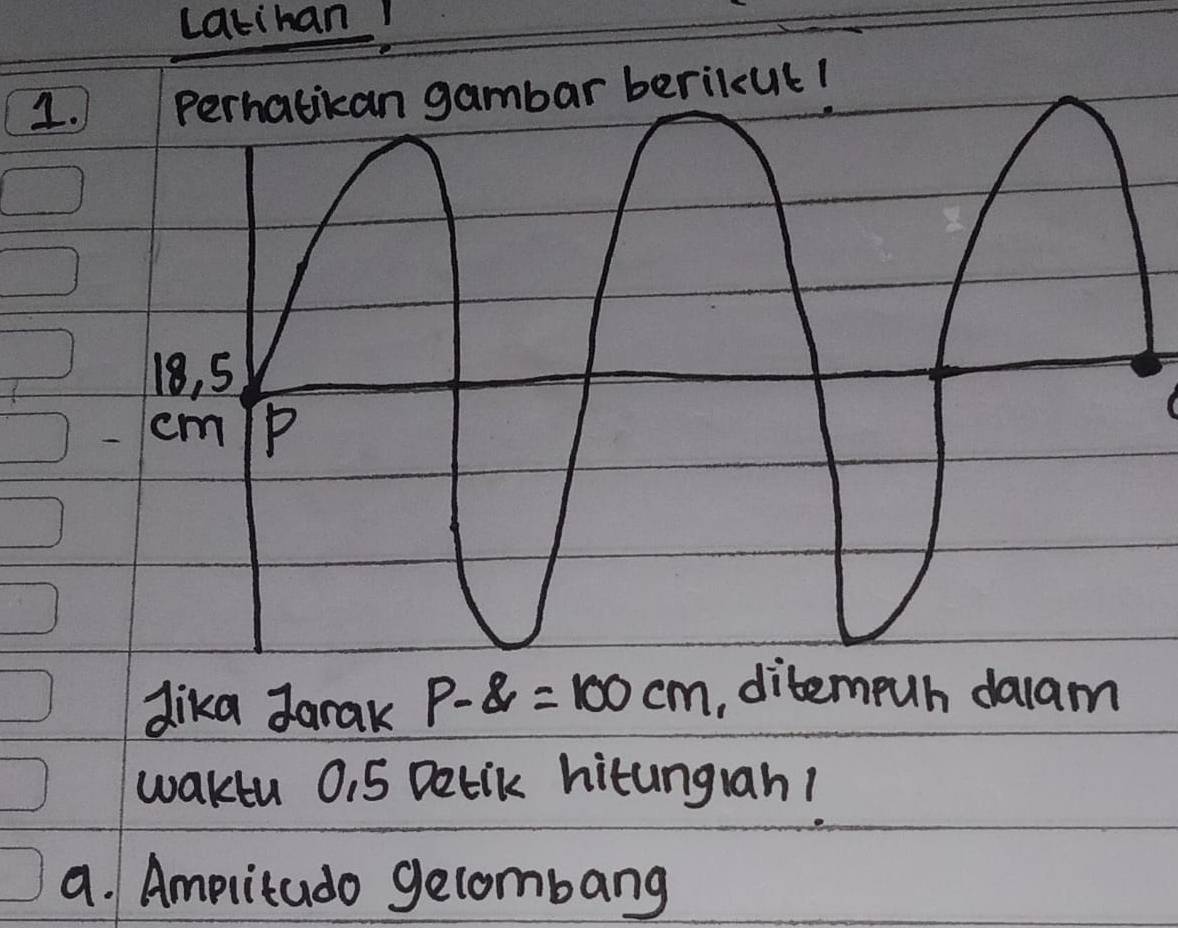 Latihan !
1. Perhatikan gambar berikut!
18,5
cm P
Jika Jarak P-Q = 100 cm, ditempuh dalam
waktu 0,5 Detik hitunglah!
a. Amplitudo gelombang